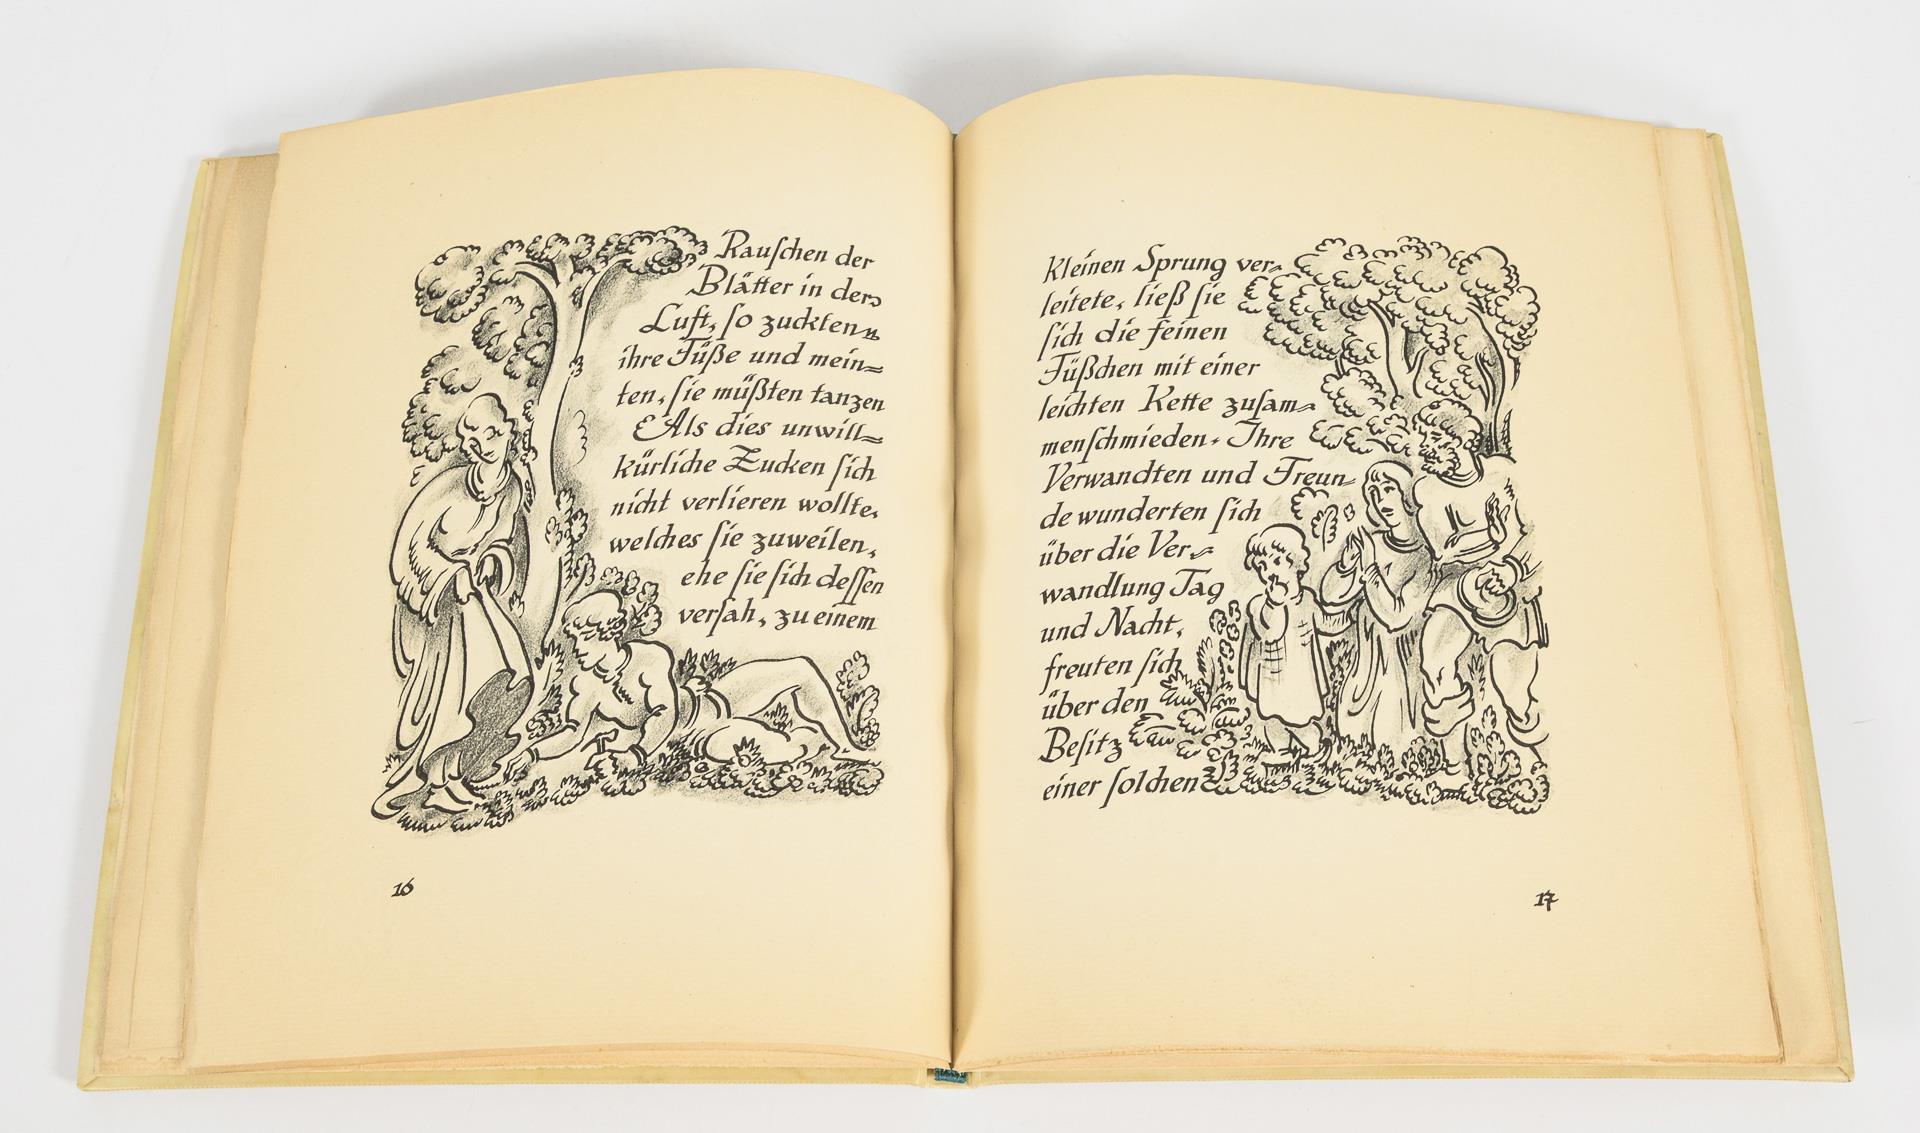 Rauſchen der
Blätter in der
Luft, ſo zuckten
ihre Füße und mein=
ten, ſie müßten tanzen
Als dies unwill=
kürliche Zucken ſich
nicht verlieren wollte,
welches ſie zuweilen,
ehe ſie ſich deſſen
verſah, zu einem
16
kleinen Sprung ver=
leitete, ließ ſie
ſich die feinen
Füßchen mit einer
leichten Kette zuſam=
menſchmieden. Ihre
Verwandten und Freun=
de wunderten ſich
über die Ver=
wandlung Tag
und Nacht,
freuten ſich
über den
Beſitz
einer ſolchen
17